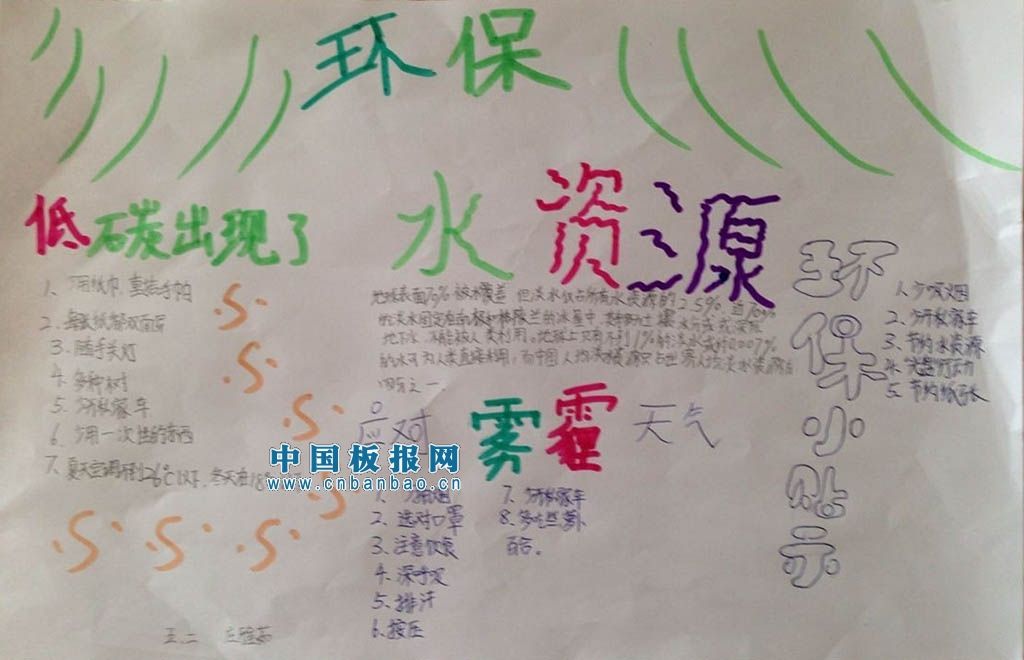 环保
低碳出现了
1、少用纸巾,重拾手帕
2、每张纸都双面写
3、随手关灯
4、多种树
5、少开私家车
6、少用一次性的东西
7、夏天空调不到26℃以下,冬天在18
水资源
地球表面70%被水覆盖 但淡水仅占所有水资源的2.5% 近70%
的淡水固定在南极和格陵兰的冰层中,其余多为土壤水分或深层
地下水,不能被人类利用。地球上只有不到1%的淡水或约0.007%
的水可为人类直接利用,而中国人均淡水资源只占世界人均淡水资源的
四分之一
应对雾霾天气
1、少抽烟
2、选对口罩
3、注意饮食
4、深呼吸
5、排汗
6、按压
7、少开私家车
8、多吃些萝卜
百合。
环保小贴示
1、少吸烟
2、少开私家车
3、节约水资源
4、光盘行动
5、节约纸张
五、二
中国板报网
www.cnbanbao.cn